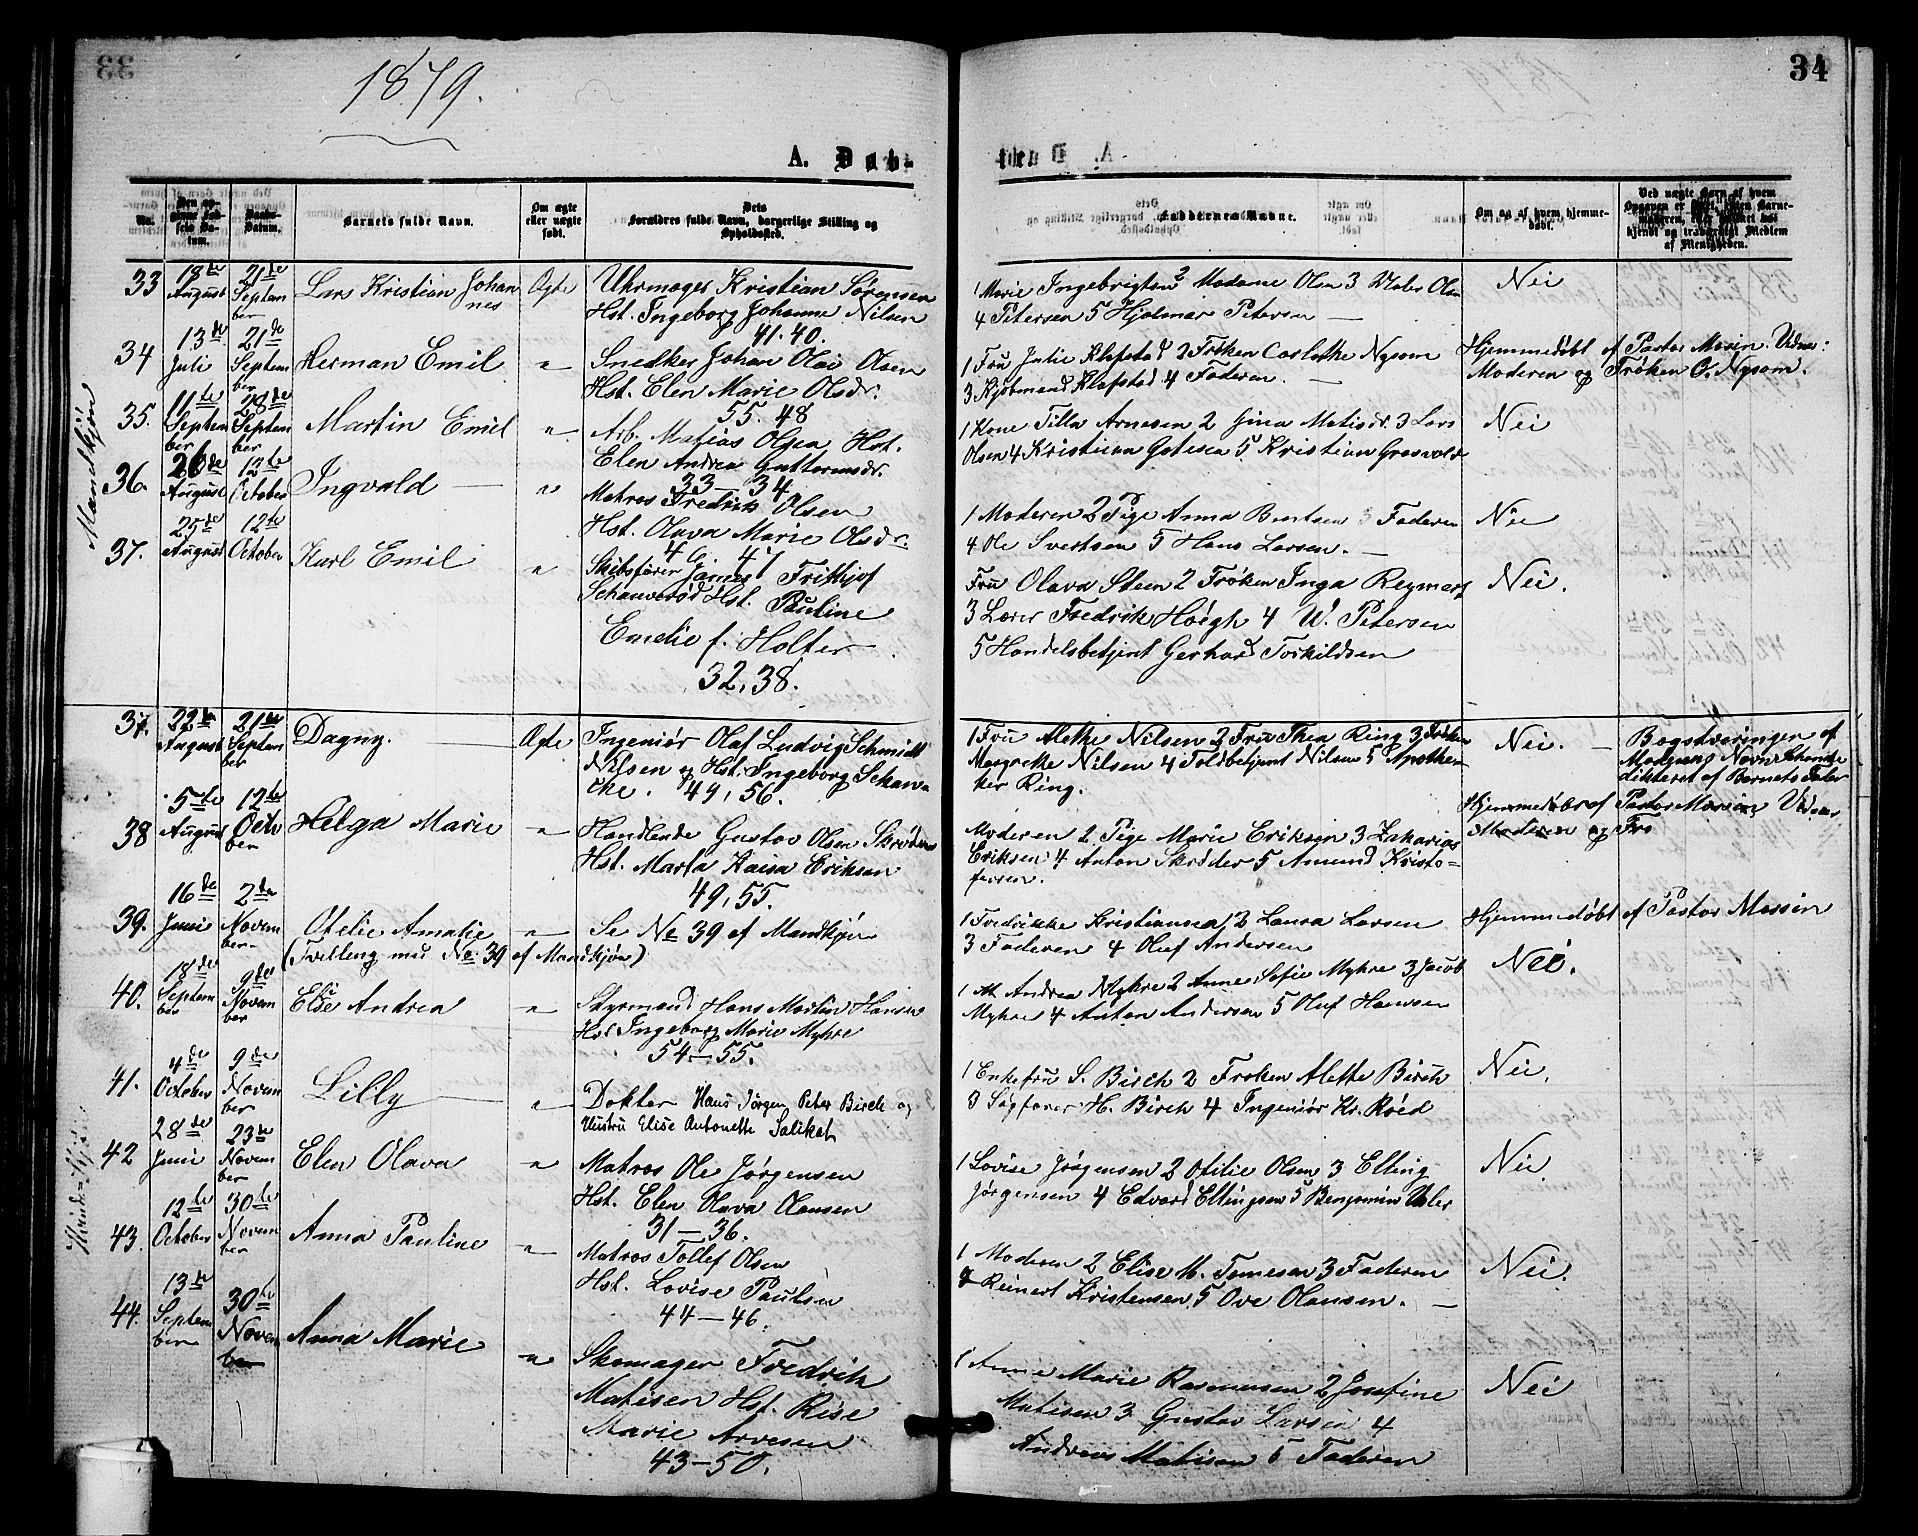 1879.
34
A. Døbt
No.
Den opgivne Fødsels Datum.
Daabs-Datum.
Barnets fulde Navn.
Om ægte eller uægte født.
Dets Forældres fulde Navn, borgerlige Stilling og Opholdssted.
Faddernes Navne.
Om og af hvem hjemmedøbt.
Mandkjøn
33 18de August 21de September Lars Kristian Johannes Ægte
Uhrmager Kristian Sørensen
Hst. Ingeborg Johanne Nilsen
41.40.
1 Marie Ingebrigtsen 2 Madame Olsen 3 Valer Olsen
4 Petersen 5 Hjalmar Petersen —
Nei
34 13de Juli 21de September Herman Emil "
Snedker Johan Olai Olsen
Hst. Elen Marie Olsdr.
55. 48
1 Fru Julie Klafstad 2 Frøken Carlothe Nysom
3 Kjøbmand Klafstad 4 Faderen. —
Hjemmedøbt af Pastor Massin. Vidner:
Moderen og Frøken O. Nysom.
35. 11te September 28de September Martin Emil "
Arb. Matias Olsen Hst.
Elen Andrea Guttormsdr.
33—34
1 Kone Tilla Arnesen 2 Gina Matisdr. 3 Lars
Olsen 4 Kristian Gotesen 5 Kristian Grosvold
Nei
36. 26de August 12te October Ingvald — "
Matros Fredrik Olsen
Hst. Olava Marie Olsdr.
46. 47
1 Moderen 2 Pige Anna Bentsen 3 Faderen
4 Ole Svertsen 5 Hans Larsen. —
Nei
37. 25de August 12te October Karl Emil "
Skibsfører James Frithjof
Schanverød Hst. Pauline
Emelie f. Holter
32,38.
Fru Olava Steen 2 Frøken Inga Reymers
3 Lærer Fredrik Høegh 4 W. Petersen
5 Handelsbetjent Gerhard Torkildsen
Nei.
37. 22de August 21de September Dagny. — Ægte
Ingeniør Olaf Ludvig Schmidt
Nilsen og Hst. Ingeborg Schan-
che. 49, 56.
1 Fru Alethe Nilsen 2 Fru Thea Ring 3 Frøken
Margrethe Nilsen 4 Toldbetjent Nilsen 5 Apothe-
ker Ring.
Nei. —
Bogstaveringen af
Navn Schanche
dikteret af Barnets Fader
38 5te August 12te October Helga Marie "
Handlende Gustav Olsen Skrøder
Hst. Marta Eriksen
49,55.
Moderen 2 Pige Marie Eriksen 3 Zakarias
Eriksen 4 Anton Skrøder 5 Amund Kristo-
fersen.
Hjemmedøbt af Pastor Massin, Vidner
Moderen og Fro
39. 16de Juni 2den November Otelie Amalie "
(Tvilling med No 39 af Mandkjøn)
Se No 39 af Mandkjøn
1 Fredrikke Kristiansen 2 Laura Larsen
3 Faderen 4 Oluf Andersen
Hjemmedøbt af Pastor Massin
40. 18de September 9de November Elise Andrea "
Styrmand Hans Martin Hansen
Hst Ingeborg Marie Myhre
54—55.
1 M. Andrea Myhre 2 Anne Sofie Myhre 3 Jacob
Myhre 4 Anton Andersen 5 Oluf Hansen
Nei.
41. 4de October 9de November Lilly — "
Doktor Hans Jørgen Peter Birch og
Hustru Elise Antonette Salikat
1 Enkefru S. Birch 2 Frøken Alette Birch
3 Sagfører H. Birch 4 Ingeniør Kr. Røed
Nei.
42 28de Juni 23de November Elen Olava "
Matros Ole Jørgensen
Hst. Elen Olava Hansen
31—36.
1 Lovise Jørgensen 2 Otilie Olsen 3 Elling
Jørgensen 4 Edvard Ellingsen 5 Benjamin Valer
Nei
43. 12te October 30te November Anna Pauline "
Matros Tollef Olsen
Hst. Lovise Paulsen
44—46.
1 Moderen 2 Elise M. Tomesen 3 Faderen
4 Reinert Kristensen 5 Ove Olausen. —
Nei.
44. 13de September 30te November Anna Marie "
Skomager Fredrik
Matisen Hst. Rise
Marie Arvesen
43—50.
1 Anne Marie Rasmussen 2 Josefine
Matisen 3 Gustav Larsen 4
Andreas Matisen 5 Faderen
Nei